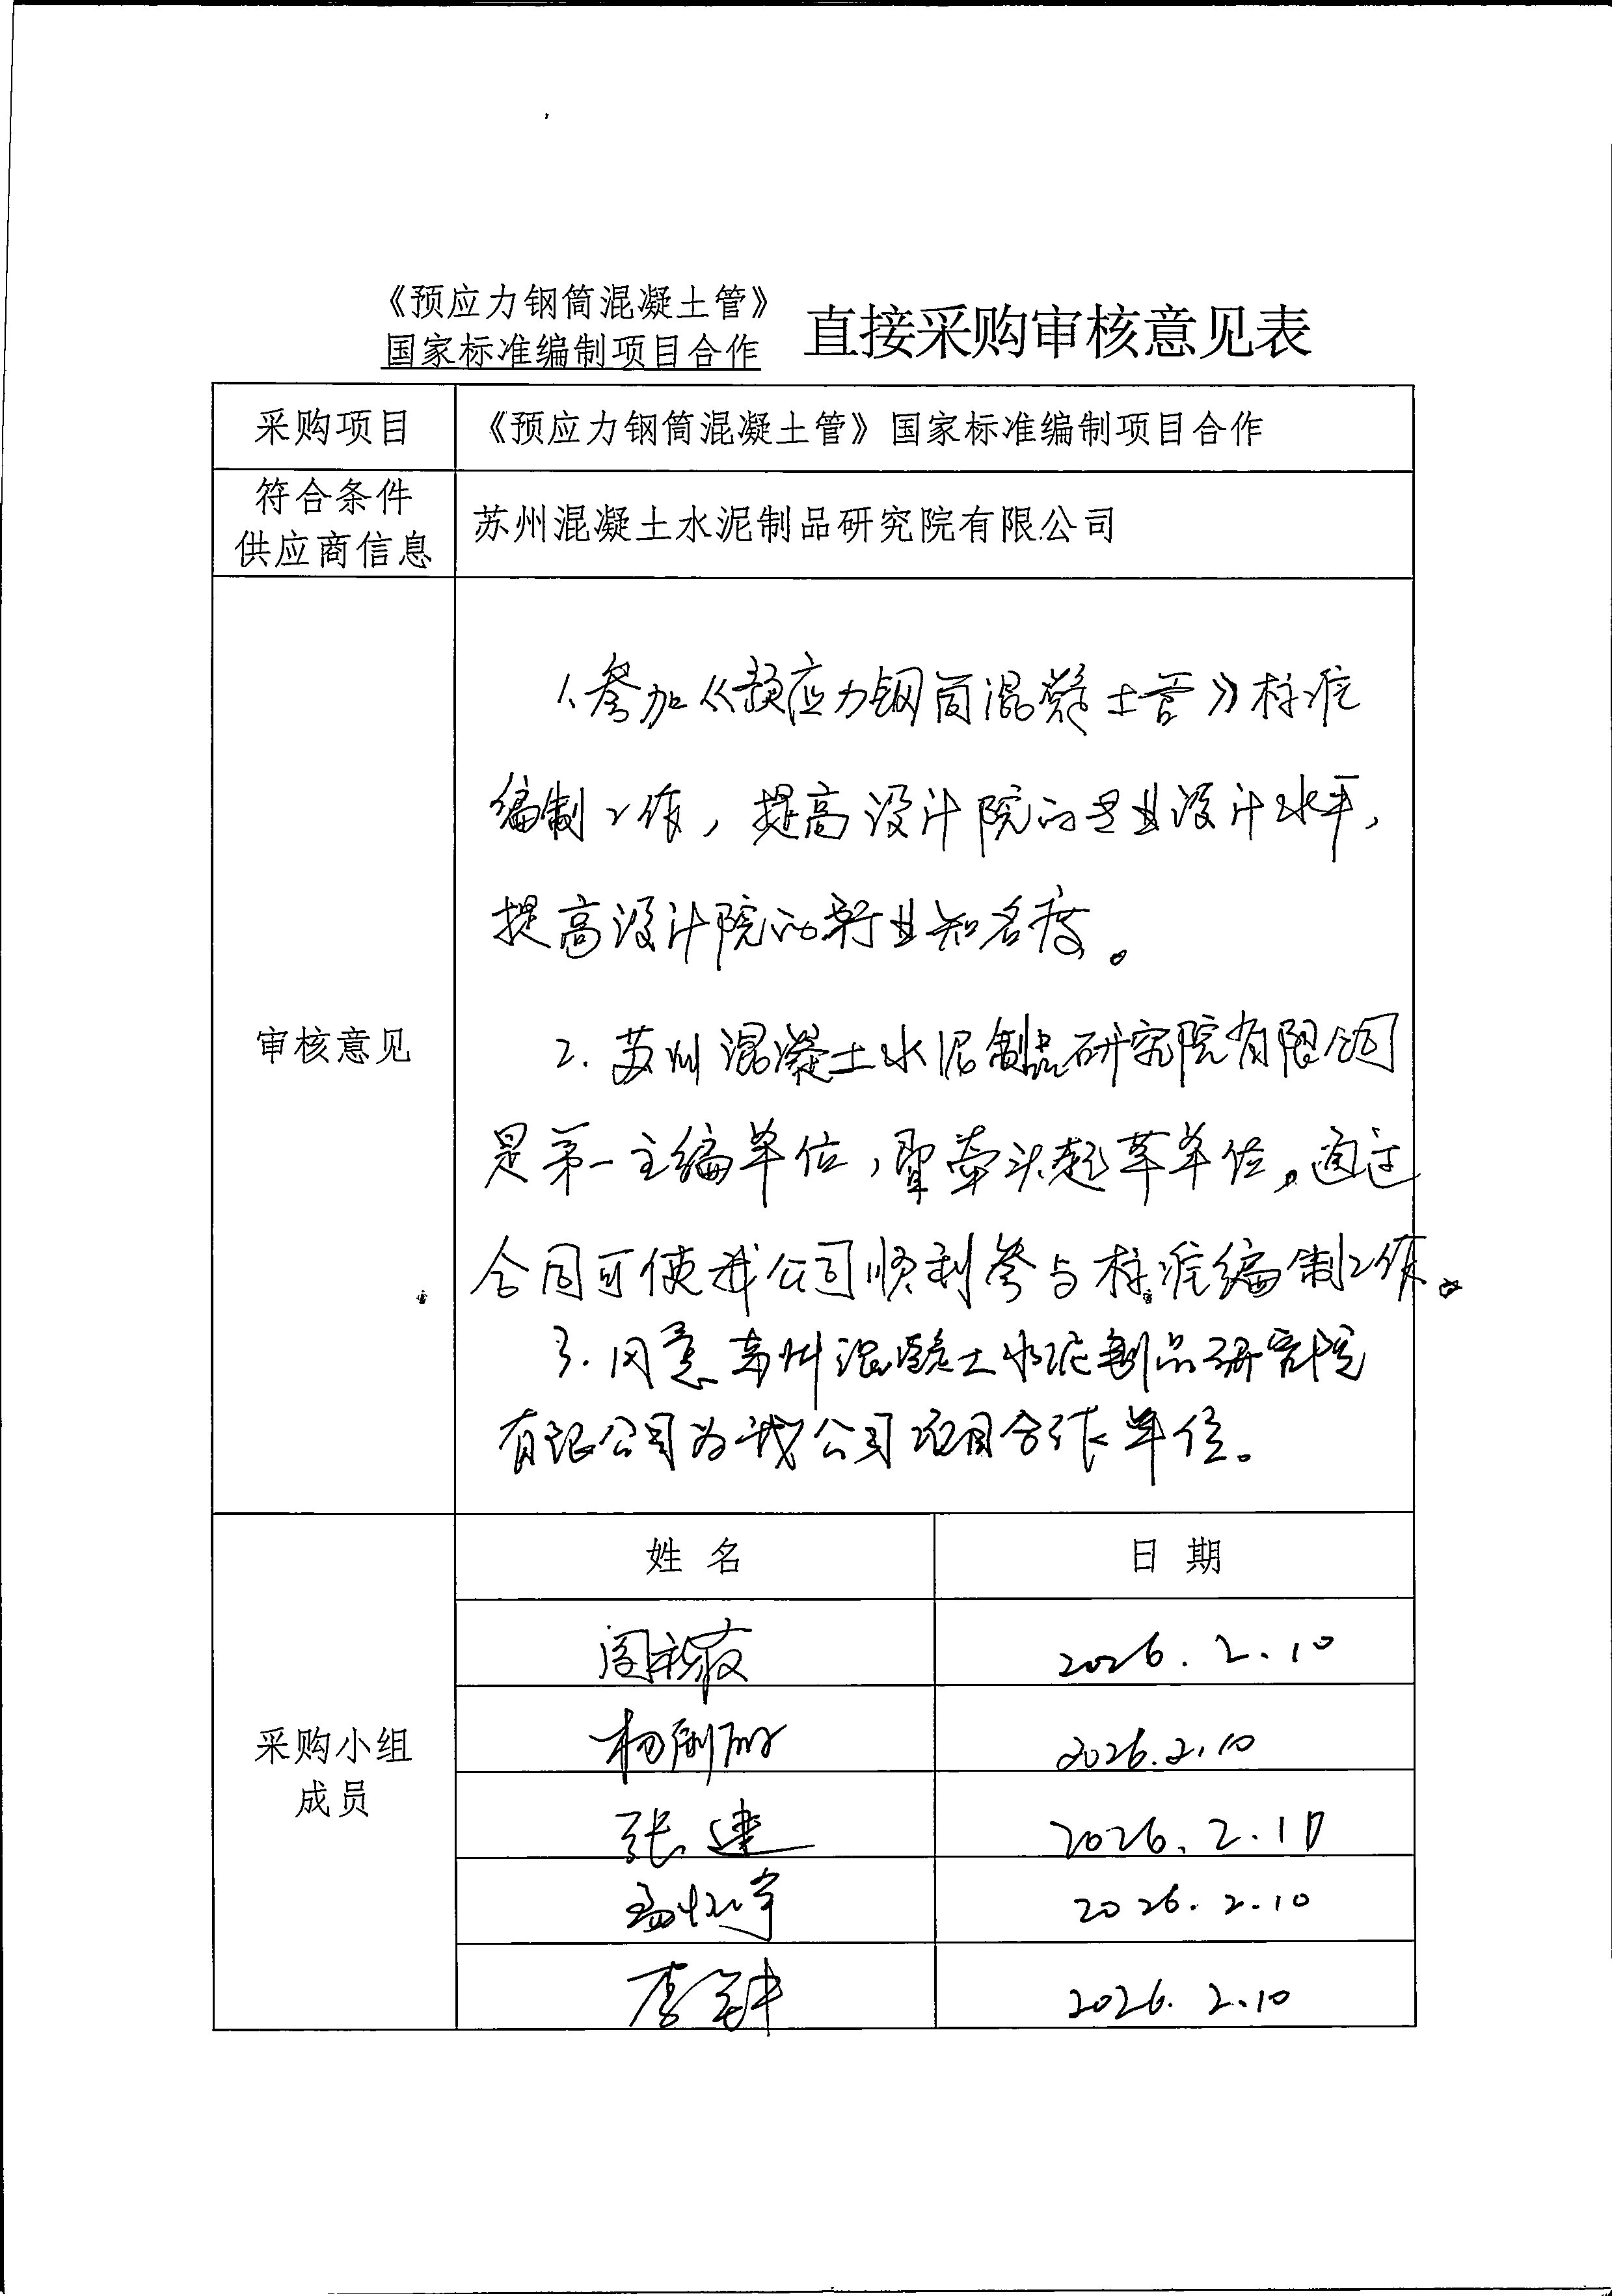 《预应力钢筒混凝土管》
国家标准编制项目合作 直接采购审核意见表
采购项目 《预应力钢筒混凝土管》国家标准编制项目合作
符合条件
供应商信息 苏州混凝土水泥制品研究院有限公司
审核意见
1、参加《预应力钢筒混凝土管》标准
编制工作，提高设计院的专业设计水平，
提高设计院的行业知名度。
2. 苏州混凝土水泥制品研究院有限公司
是第一主编单位，暨牵头起草单位。通过
合同可使我公司顺利参与标准编制工作。
3. 同意苏州混凝土水泥制品研究院
有限公司为我公司项目合作单位。
采购小组
成员
姓 名 日 期
2026. 2. 10
杨 2026.2.10
张建 2026. 2. 10
2026. 2. 10
李 2026. 2.10